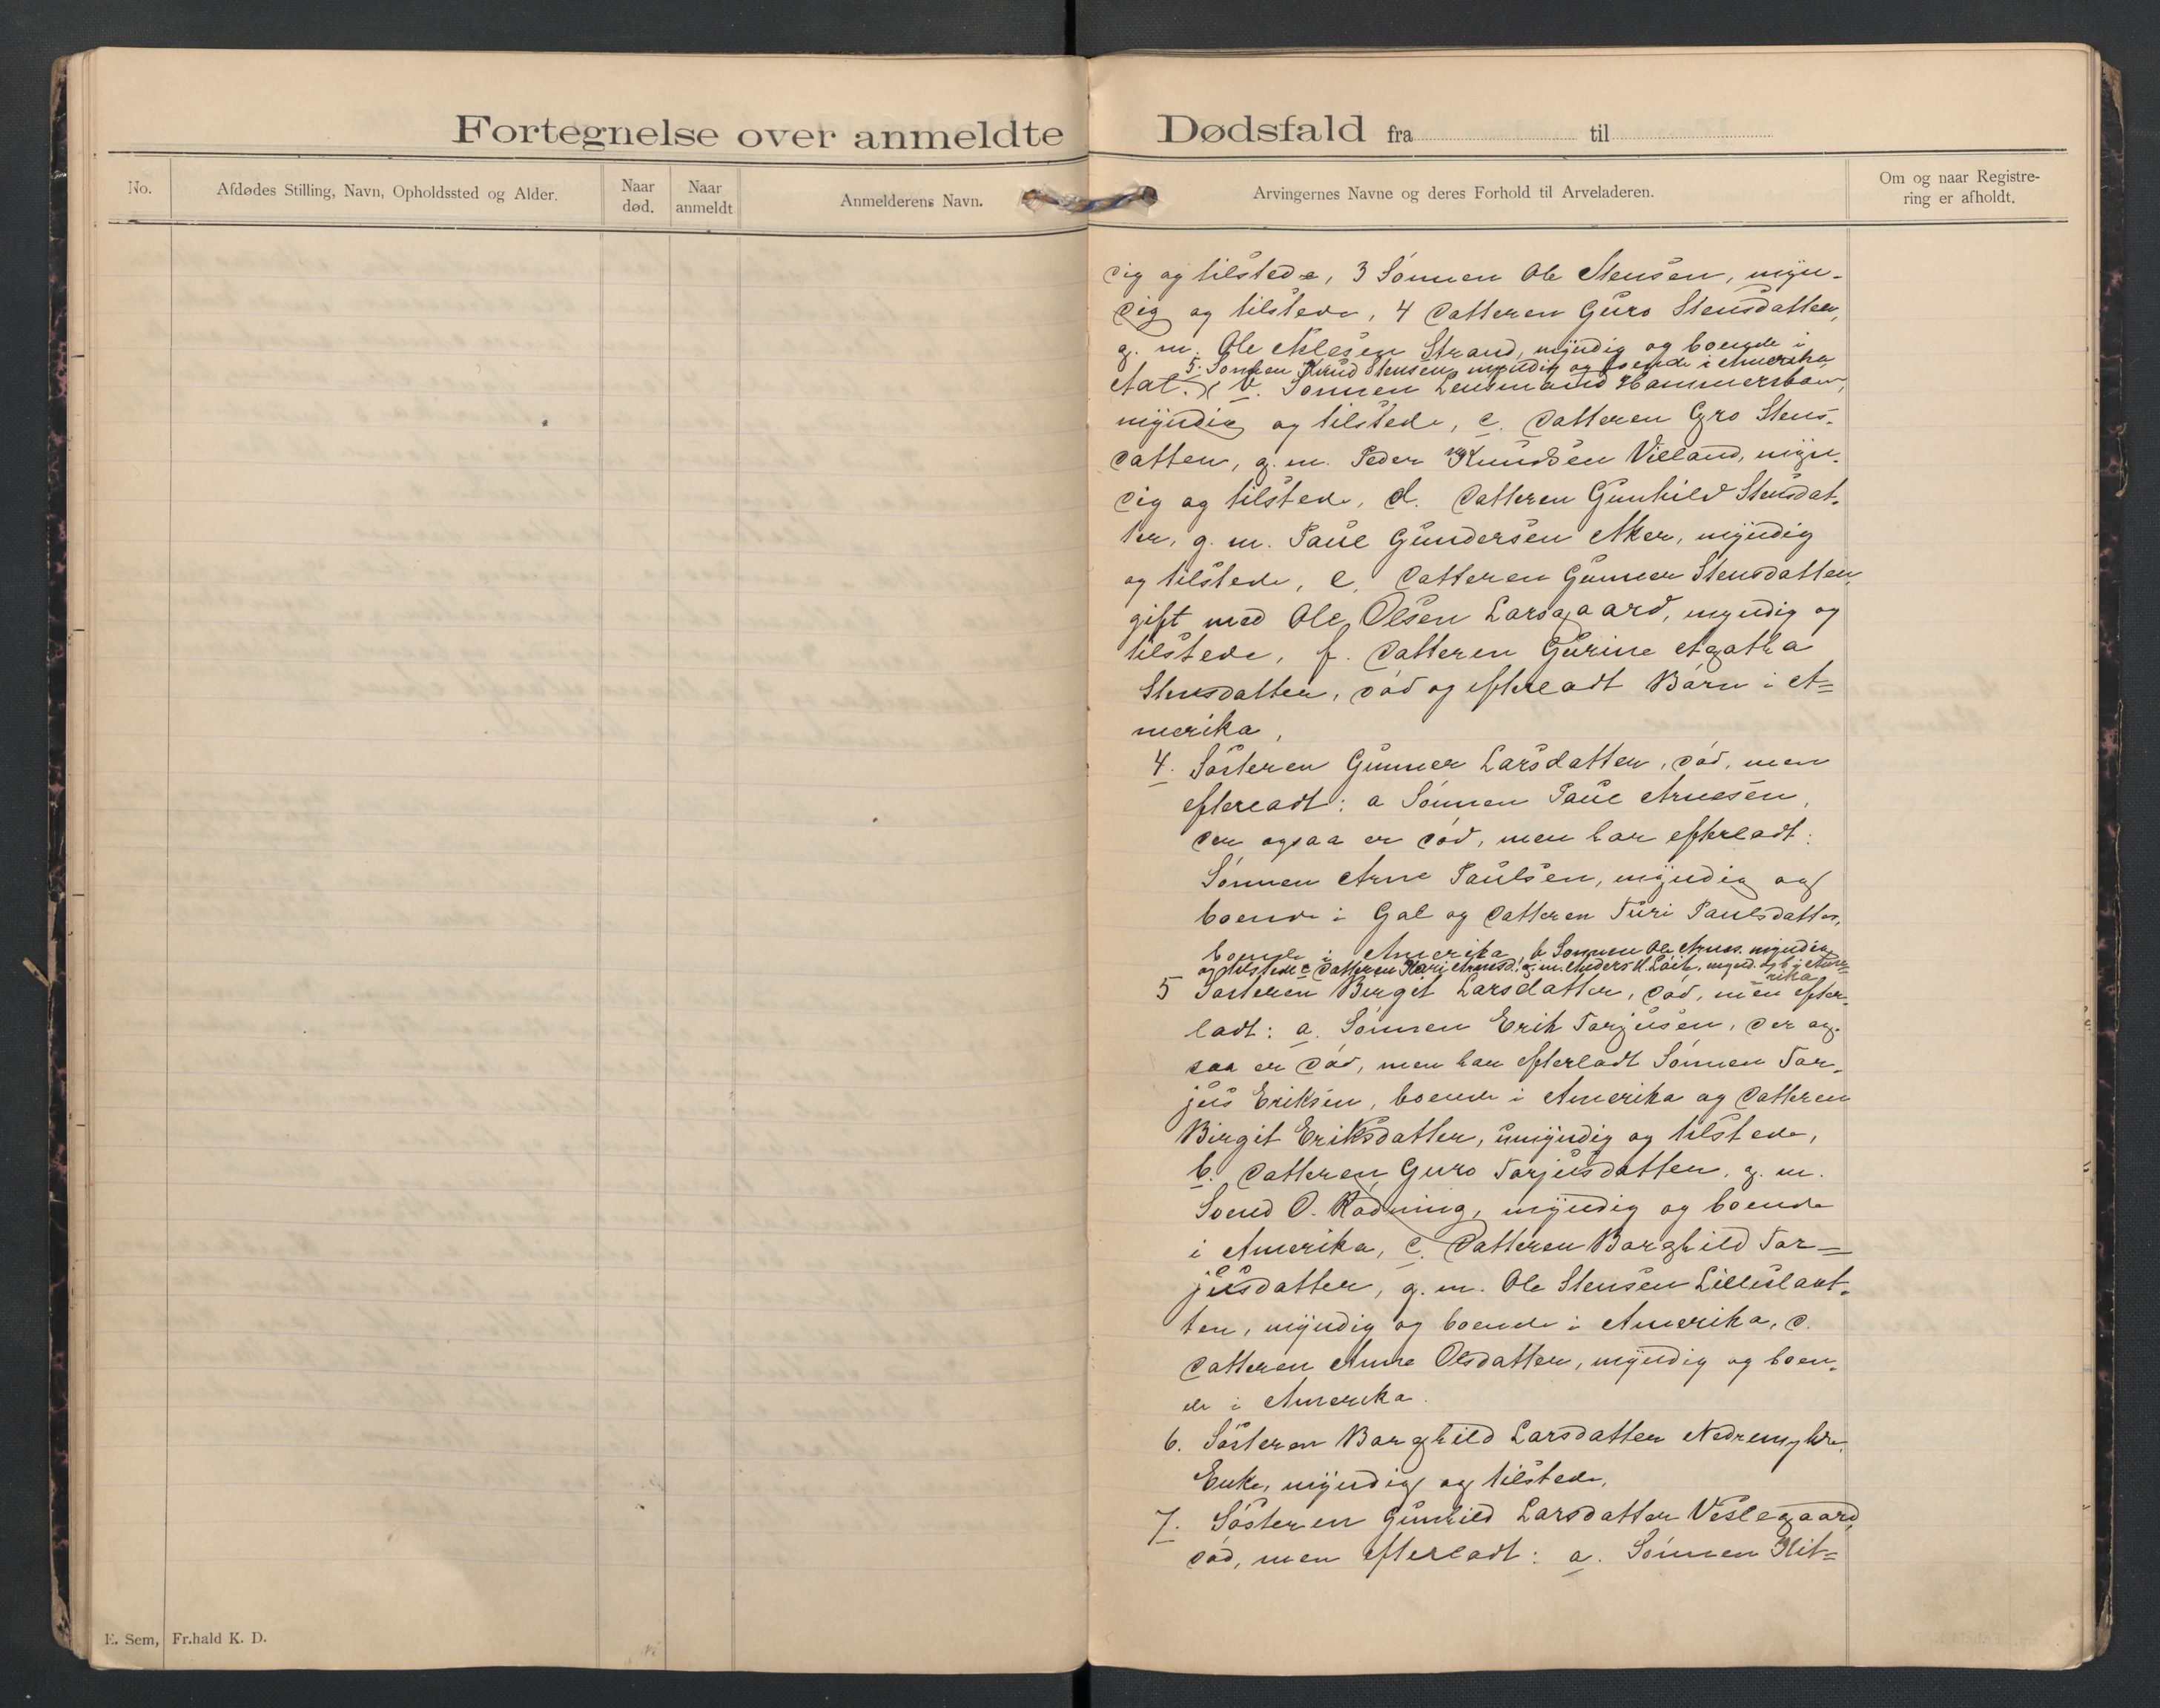 Fortegnelse over anmeldte Dødsfald fra til
No.
Afdødes Stilling, Navn, Opholdssted og Alder.
Naar død.
Naar anmeldt
Anmelderens Navn.
Arvingernes Navne og deres Forhold til Arveladeren.
Om og naar Registre-
ring er afholdt.
dig og tilstede, 3 Sønnen Ole Stensen, myn-
dig og tilstede, 4 Datteren Guro Stensdatter,
g. m. Ole Nilsen Strand, myndig og boende i
5. Sønnen Knud Stensen, myndig og boende i Amerika
Aal. b. Sønnen Lensmand Hammersbøen,
myndig og tilstede, c. Datteren Gro Stens-
datter, g. m. Peder Knudsen Villand, myn-
dig og tilstede, d. Datteren Gunhild Stensdat-
ter, g. m. Paul Gundersen Aker, myndig
og tilstede, e. Datteren Gunner Stensdatter,
gift med Ole Olsen Larsgaard, myndig og
tilstede, f. Datteren Gurine Agatha
Stensdatter, død og efterladt Børn i A-
merika,
4. Søsteren Gunner Larsdatter, død, men
efterladt: a Sønnen Paul Arnesen,
der ogsaa er død, men har efterladt:
Sønnen Arne Paulsen, myndig og
boende i Gol og Datteren Turi Paulsdatter,
boende i Amerika, b Sønnen Ole Arnes. myndig
og tilstede c Datteren Kari Arnesd., g. m. Anders K. mynd. og b. i Ame-
rika
5 Søsteren Birgit Larsdatter, død, men efter-
ladt: a. Sønnen Erik Tarjusen, der og-
saa er død, men har efterladt Sønnen Tar-
jus Eriksen, boende i Amerika og Datteren
Birgit Eriksdatter, umyndig og tilstede,
b. Datteren Guro Tarjusdatter, g. m.
Svend O. Rødning, myndig og boende
i Amerika, c. Datteren Barghild Tar-
jusdatter, g. m. Ole Stensen Lilleslaat-
ten, myndig og boende i Amerika, d.
Datteren Anne Olsdatter, myndig og boen-
de i Amerika.
6. Søsteren Barghild Larsdatter
Enke, myndig og tilstede,
7. Søsteren Gunhild Larsdatter Veslegaard,
død, men efterladt: a. Sønnen Kit-
E. Sem, Fr.hald K. D.